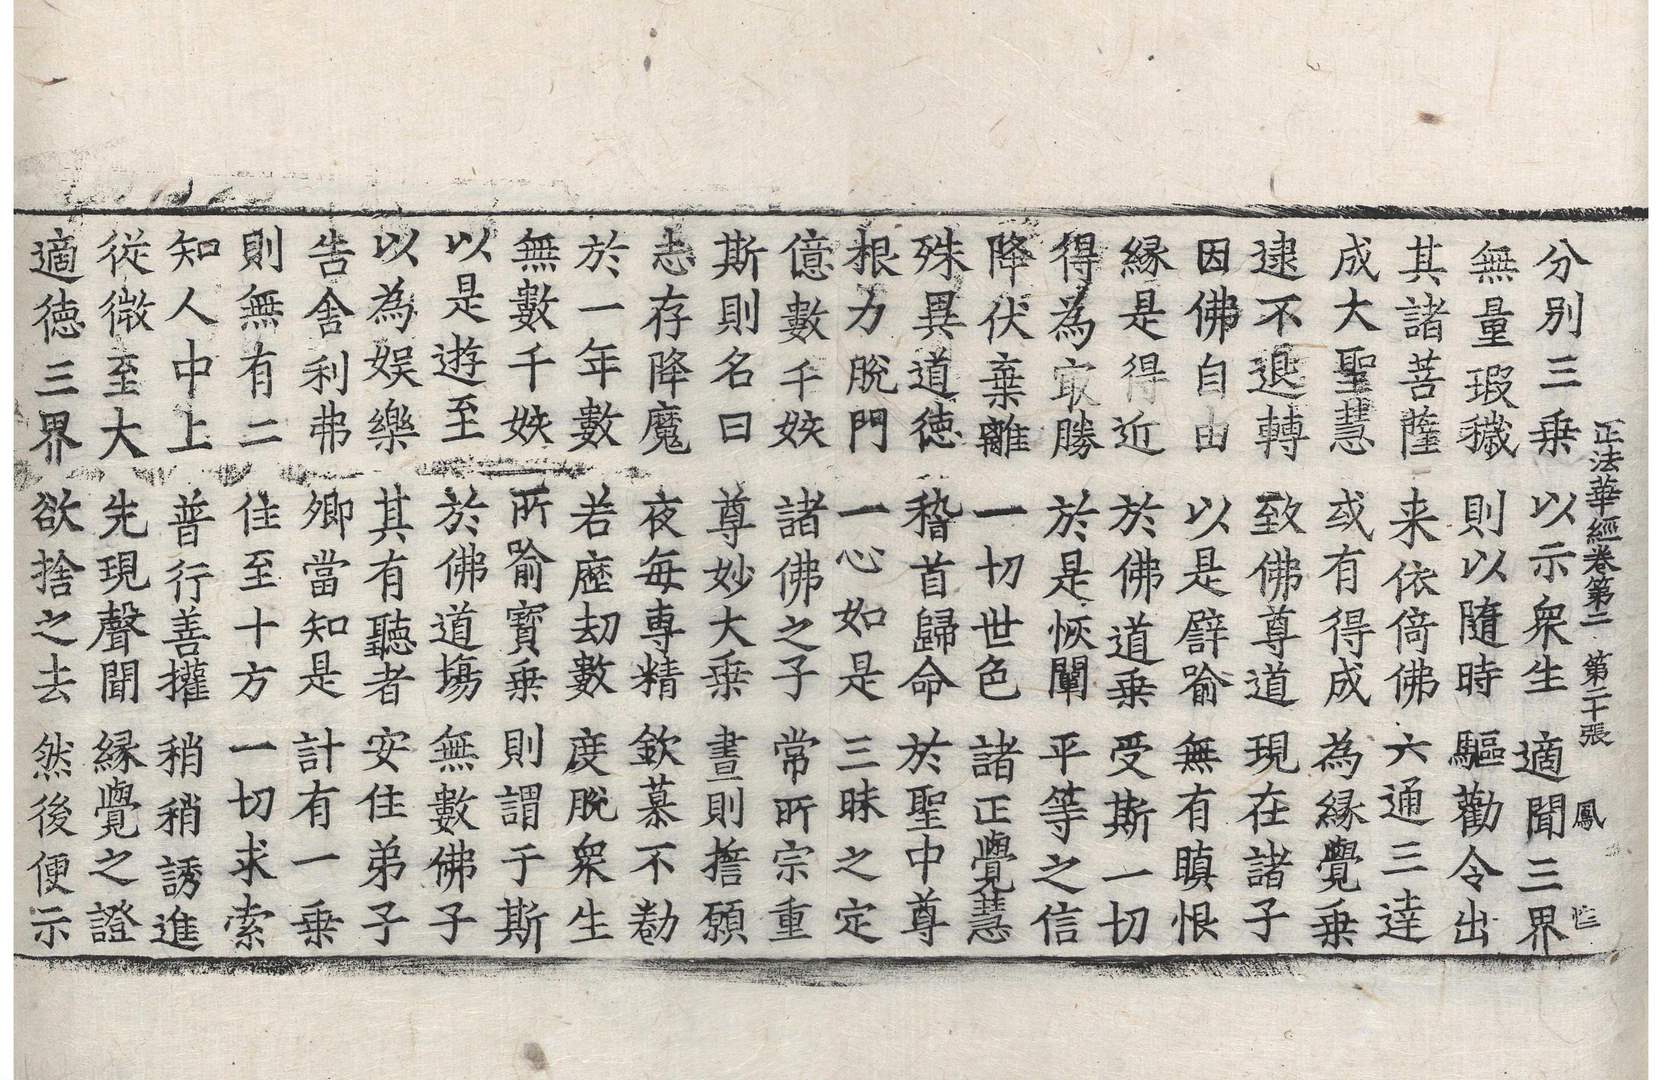 正法華經卷第二　第二十張　鳳
分別三乗　以示衆生　適聞三界
無量瑕穢　則以隨時　驅勸令出
其諸菩薩　来依倚佛　六通三達
成大聖慧　或有得成　為縁覺乗
逮不退轉　致佛尊道　現在諸子
因佛自由　以是譬喻　無有瞋恨
縁是得近　於佛道乗　受斯一切
得為㝡勝　於是恢闡　平等之信
降伏棄離　一切世色　諸正覺慧
殊異道徳　稽首歸命　於聖中尊
根力脫門　一心如是　三昧之定
億數千姟　諸佛之子　常所宗重
斯則名曰　尊妙大乗　晝則擔願
志存降魔　夜每專精　欽慕不勌
於一年數　若歷劫數　度脫衆生
無數千姟　所喻寶乗　則謂于斯
以是遊至　於佛道塲　無數佛子
以為娛樂　其有聽者　安住弟子
告舍利弗　卿當知是　計有一乗
則無有二　佳至十方　一切求索
知人中上　普行善權　稍稍誘進
従微至大　先現聲聞　縁覺之證
適徳三界　欲捨之去　然後便示